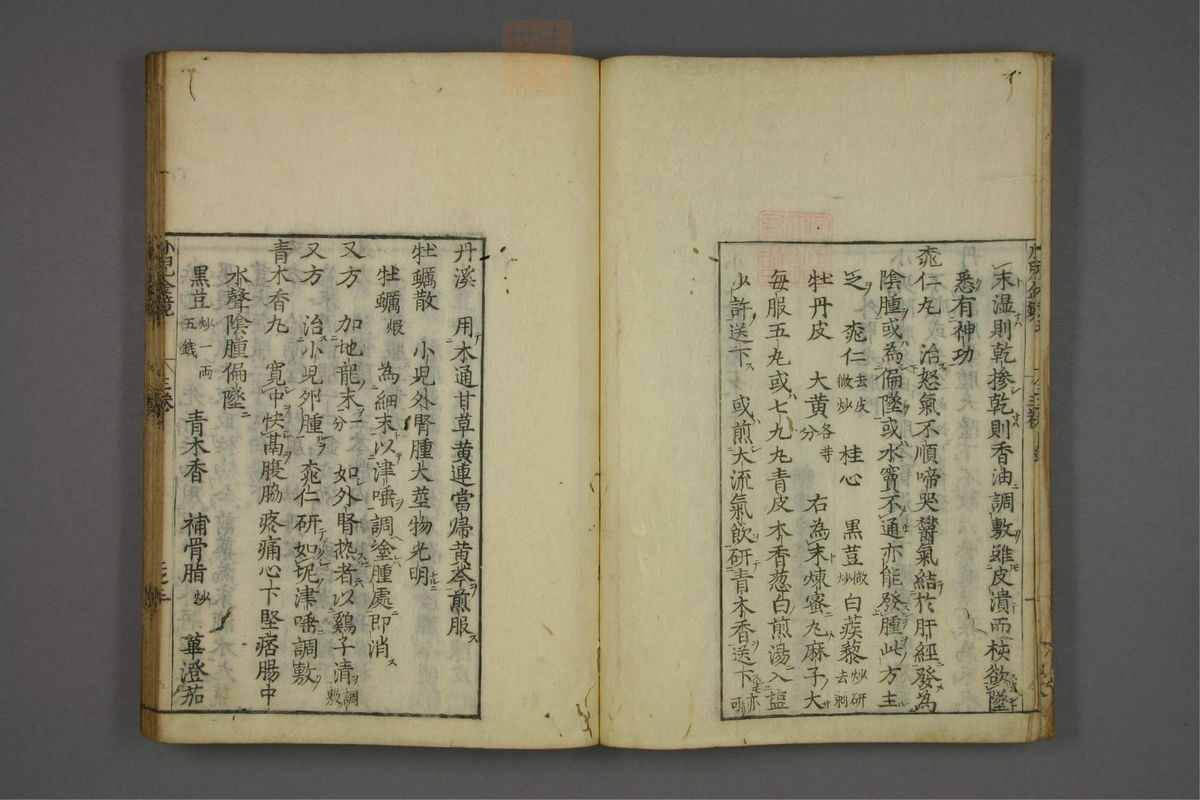 末温則乾摻乾則香油調敷雖皮潰而核欲墜
悉有神功
桃仁丸　治怒氣不順啼哭欝氣結於肝經發為
陰腫或為偏墜或水竇不通亦能發腫此方主
之　桃仁去皮微炒　桂心　黑荳微炒　白蒺藜炒研去刺
牡丹皮　大黃各等分　右為末煉蜜丸麻子大
每服五丸或七九丸青皮木香葱白煎湯入盐
少許送下　或煎大流氣飲研青木香送下亦可
丹溪　用木通甘草黄連當帰黄芩煎服
牡蠣散　小児外腎腫大莖物光明
牡蠣煅　為細末以津唾調塗腫處即消
又方　加地龍末一分　如外腎热者以鷄子清調敷
又方　治小児卵腫　桃仁研如坭津唾調敷
青木香丸　寛中快膈腹脇疼痛心下堅痞腸中
水聲陰腫偏墜
黑荳炒一兩五錢　青木香　補骨脂炒　蓽澄茄